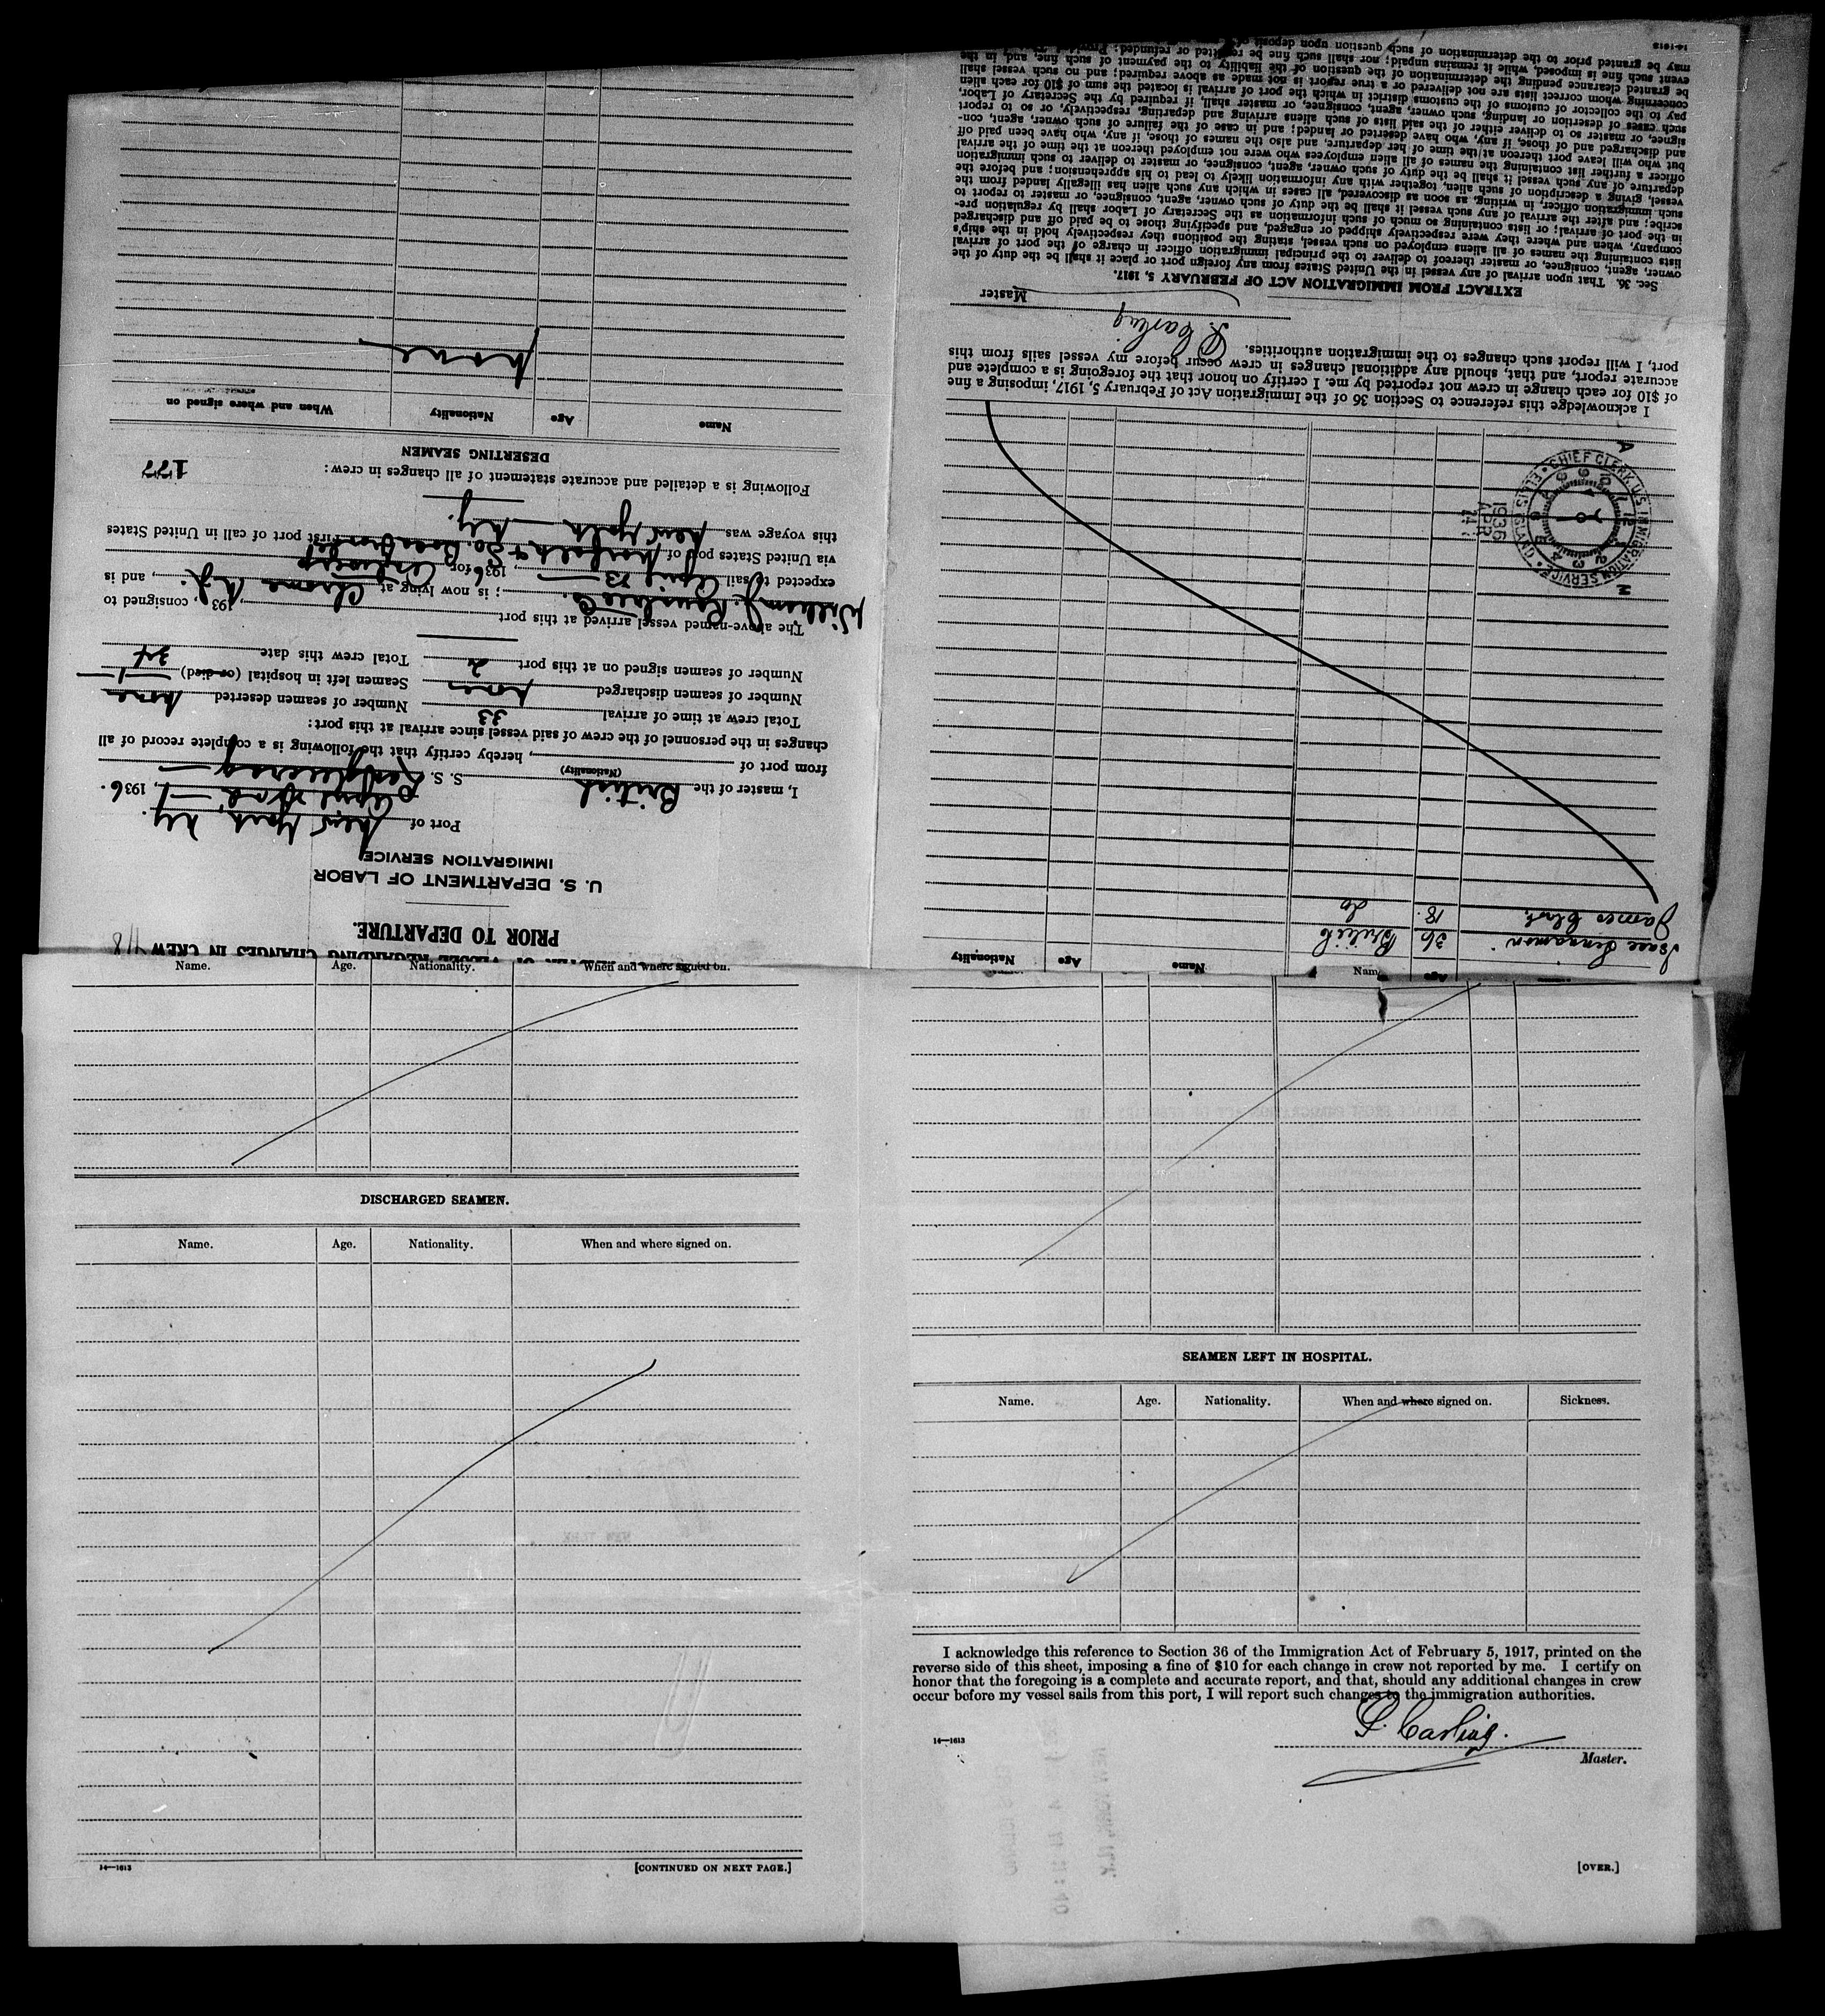 418
MASTER OF VESSEL REGARDING CHANGES IN CREW
PRIOR TO DEPARTURE.
U. S. DEPARTMENT OF LABOR
IMMIGRATION SERVICE
Port of New York, Ny.
April 1936.
I, master of the British S. S.
(Nationality)
from port of , hereby certify that the following is a complete record of all
changes in the personnel of the crew of said vessel since arrival at this port:
Total crew at time of arrival 33 Number of seamen deserted none
Number of seamen discharged none Seamen left in hospital (or died) 1
Number of seamen signed on at this port 2 Total crew this date 34
The above-named vessel arrived at this port , 193 , consigned to
William J. Co. ; is now lying at Chrome N.J. , and is
expected to sail April 13 , 1936 for Antwerp
via United States port of Norfolk & First port of call in United States
this voyage was New York Ny.
Following is a detailed and accurate statement of all changes in crew:
177
DESERTING SEAMEN
Name Age Nationality When and where signed on
none
Name Age Nationality
Name Age Nationality
Isaac 36 British
James 18. Do
CHIEF CLERK, U.S. IMMIGRATION SERVICE • ELLIS ISLAND •
1936 APR 24
I acknowledge this reference to Section 36 of the Immigration Act of February 5, 1917, imposing a fine
of $10 for each change in crew not reported by me. I certify on honor that the foregoing is a complete and
accurate report, and that, should any additional changes in crew occur before my vessel sails from this
port, I will report such changes to the immigration authorities.
Carling
Master
EXTRACT FROM IMMIGRATION ACT OF FEBRUARY 5, 1917.
Sec. 36. That upon arrival of any vessel in the United States from any foreign port or place it shall be the duty of the
owner, agent, consignee, or master thereof to deliver to the principal immigration officer in charge of the port of arrival
lists containing the names of all aliens employed on such vessel, stating the positions they respectively hold in the ship's
company, when and where they were respectively shipped or engaged, and specifying those to be paid off and discharged
in the port of arrival; or lists containing so much of such information as the Secretary of Labor shall by regulation pre-
scribe; and after the arrival of any such vessel it shall be the duty of such owner, agent, consignee, or master to report to
such immigration officer, in writing, as soon as discovered, all cases in which any such alien has illegally landed from the
vessel, giving a description of such alien, together with any information likely to lead to his apprehension; and before the
departure of any such vessel it shall be the duty of such owner, agent, consignee, or master to deliver to such immigration
officer a further list containing the names of all alien employees who were not employed thereon at the time of the arrival
but who will leave port thereon at the time of her departure, and also the names of those, if any, who have been paid off
and discharged and of those, if any, who have deserted or landed; and in case of the failure of such owner, agent, con-
signee, or master so to deliver either of the said lists of such aliens arriving and departing, respectively, or so to report
such cases of desertion or landing, such owner, agent, consignee, or master shall, if required by the Secretary of Labor,
pay to the collector of customs of the customs district in which the port of arrival is located the sum of $10 for each alien
concerning whom correct lists are not delivered or a true report is not made as above required; and no such vessel shall
be granted clearance pending the determination of the question of the liability to the payment of such fine, and, in the
event such fine is imposed, while it remains unpaid; nor shall such fine be remitted or refunded: Provided,
may be granted prior to the determination of such question upon deposit of
14-1613
Name. Age. Nationality. When and where signed on.
DISCHARGED SEAMEN.
Name. Age. Nationality. When and where signed on.
14—1613
[CONTINUED ON NEXT PAGE.]
SEAMEN LEFT IN HOSPITAL.
Name. Age. Nationality. When and where signed on. Sickness.
I acknowledge this reference to Section 36 of the Immigration Act of February 5, 1917, printed on the
reverse side of this sheet, imposing a fine of $10 for each change in crew not reported by me. I certify on
honor that the foregoing is a complete and accurate report, and that, should any additional changes in crew
occur before my vessel sails from this port, I will report such changes to the immigration authorities.
Carling.
14—1613
Master.
[OVER.]